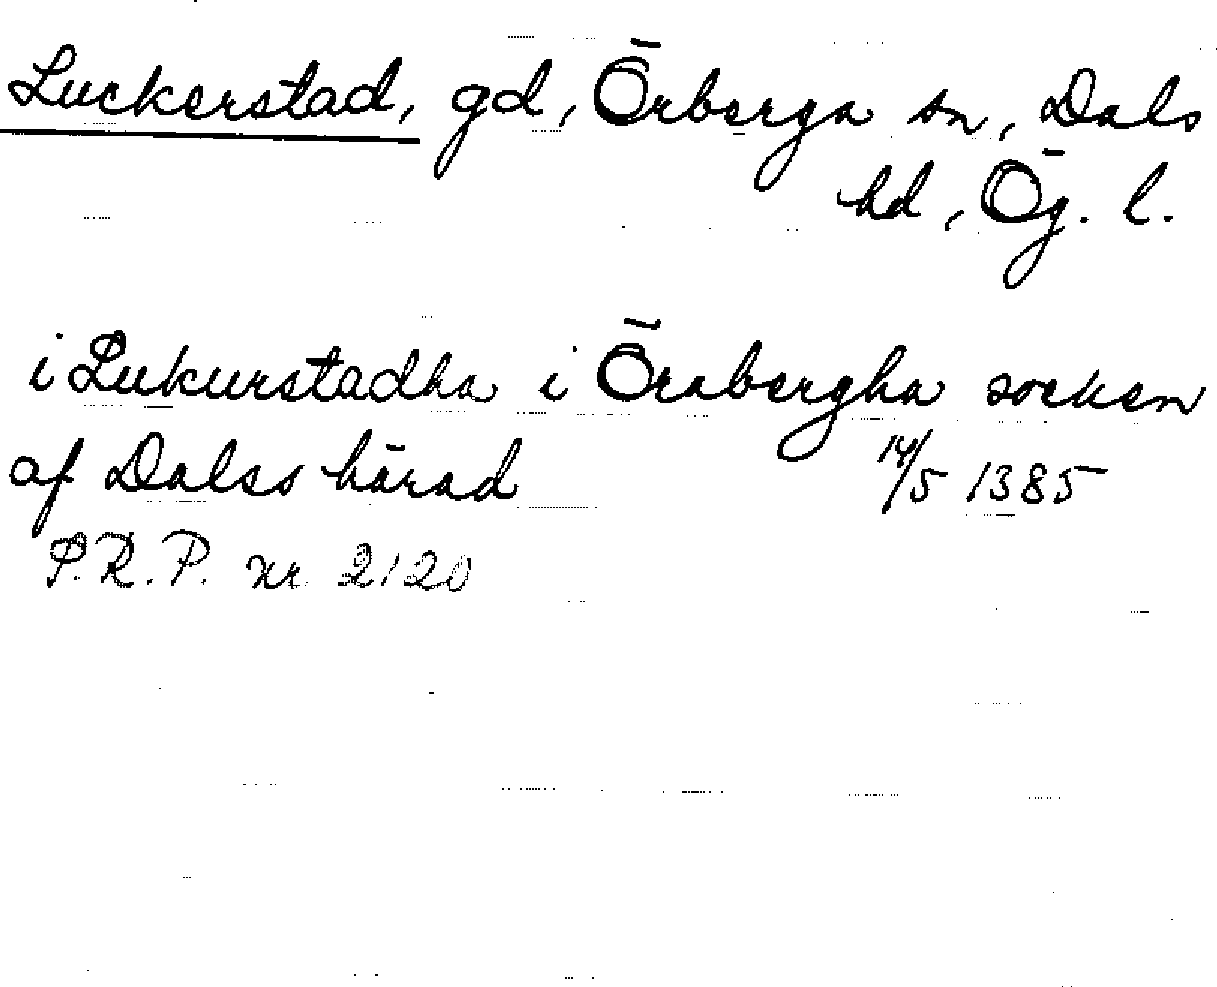 Luckerstad, gd, Örberga sn, Dals
hd, Ög. l.
i Lukurstadha i Örabergha socken
af Dalss härad 14/5 1385
P.R.P. nr. 2120